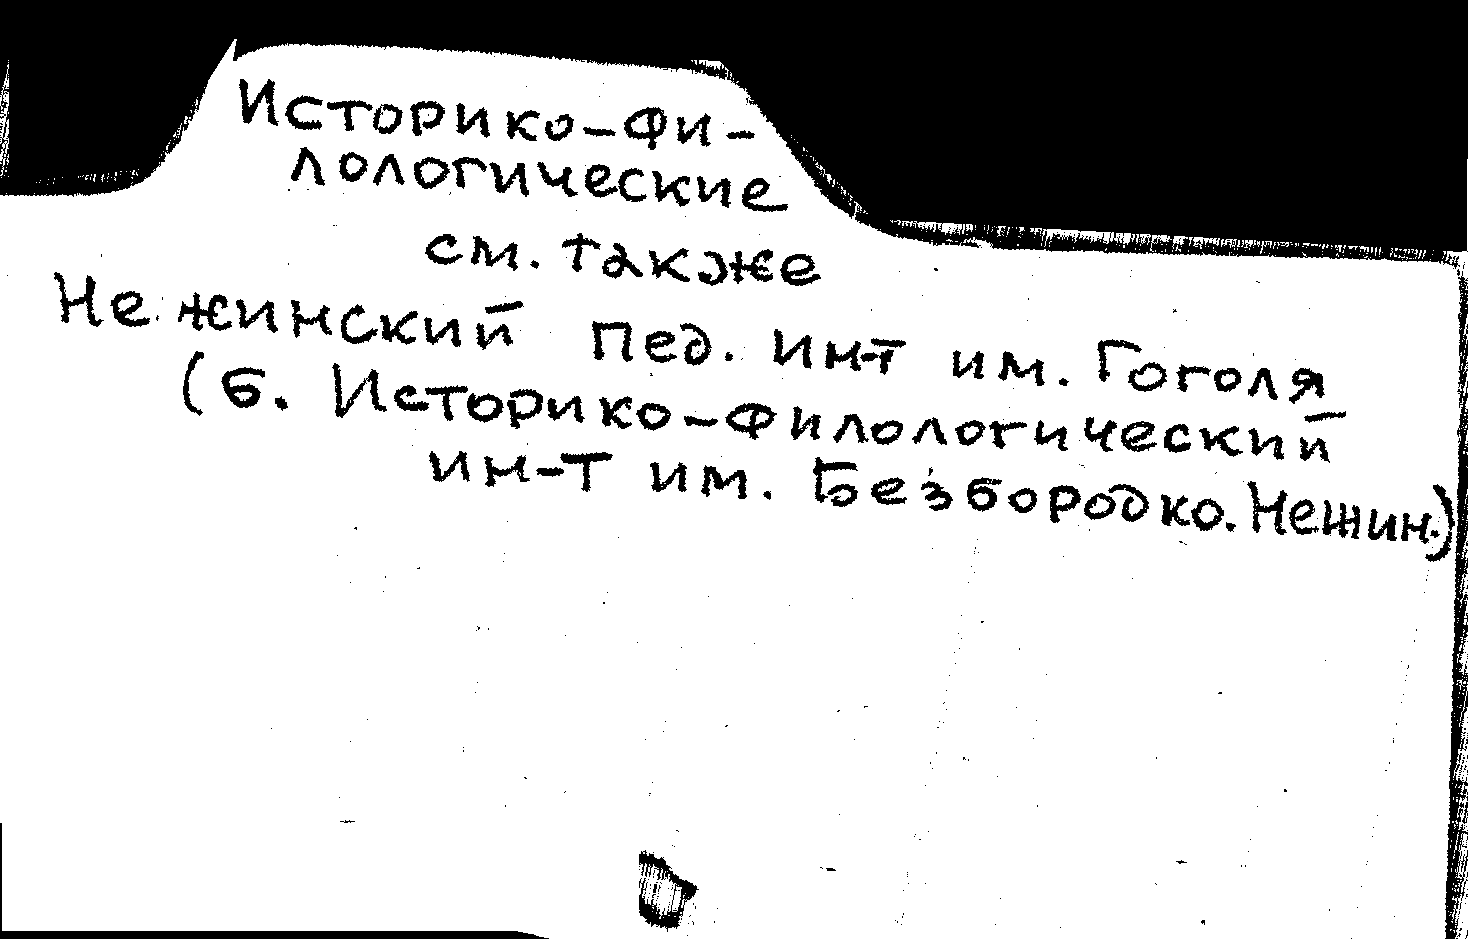 Историко-фи-
лологические
см. также
Нежинский пед. ин-т им. Гоголя
(б. Историко-филологический
ин-т им. Безбородко. Нежин.)